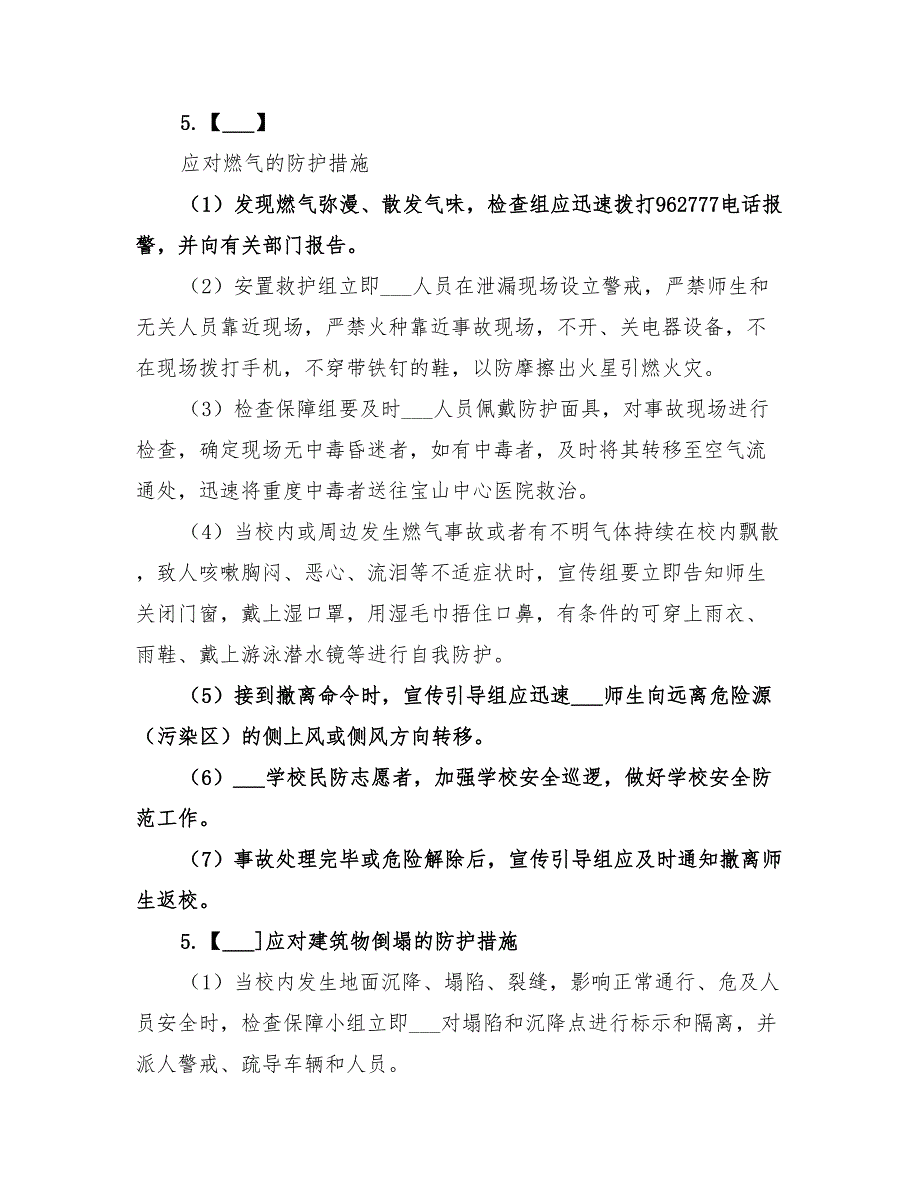 5.【___】
应对燃气的防护措施
（1）发现燃气弥漫、散发气味，检查组应迅速拨打962777电话报
警，并向有关部门报告。
（2）安置救护组立即___人员在泄漏现场设立警戒，严禁师生和
无关人员靠近现场，严禁火种靠近事故现场，不开、关电器设备，不
在现场拨打手机，不穿带铁钉的鞋，以防摩擦出火星引燃火灾。
（3）检查保障组要及时___人员佩戴防护面具，对事故现场进行
检查，确定现场无中毒昏迷者，如有中毒者，及时将其转移至空气流
通处，迅速将重度中毒者送往宝山中心医院救治。
（4）当校内或周边发生燃气事故或者有不明气体持续在校内飘散
，致人咳嗽胸闷、恶心、流泪等不适症状时，宣传组要立即告知师生
关闭门窗，戴上湿口罩，用湿毛巾捂住口鼻，有条件的可穿上雨衣、
雨鞋、戴上游泳潜水镜等进行自我防护。
（5）接到撤离命令时，宣传引导组应迅速___师生向远离危险源
（污染区）的侧上风或侧风方向转移。
（6）___学校民防志愿者，加强学校安全巡逻，做好学校安全防
范工作。
（7）事故处理完毕或危险解除后，宣传引导组应及时通知撤离师
生返校。
5.【___]应对建筑物倒塌的防护措施
（1）当校内发生地面沉降、塌陷、裂缝，影响正常通行、危及人
员安全时，检查保障小组立即___对塌陷和沉降点进行标示和隔离，并
派人警戒、疏导车辆和人员。